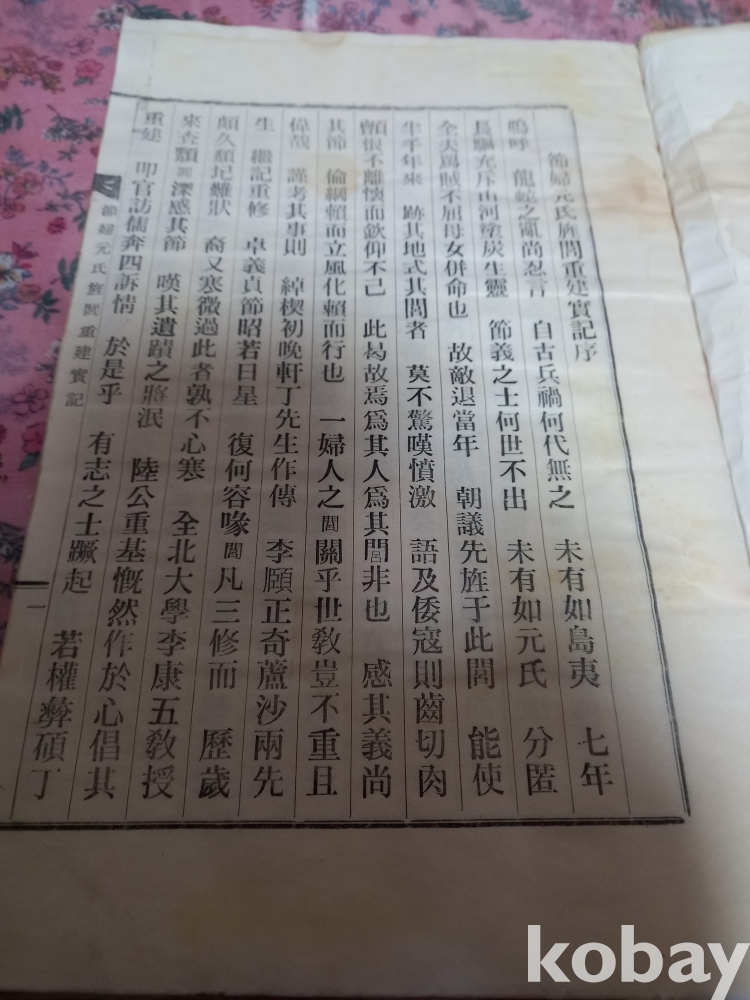 節婦元氏旌閭重建實記序
嗚呼 龍蛇之亂尚忍言 自古兵禍何代無之 未有如島夷 七年
長驅充斥山河塗炭生靈 節義之士何世不出 未有如元氏 分匿
全夫罵賊不屈母女併命也 故敵退當年 朝議先旌于此閭 能使
半千年來 跡其地式其閭者 莫不驚嘆憤激 語及倭寇則齒切肉
顫恨不離懷而欽仰不已 此曷故焉爲其人爲其閭非也 感其義尚
其節 倫綱賴而立風化賴而行也 一婦人之閭關乎世敎豈不重且
偉哉 謹考其事則 綽楔初晩軒丁先生作傳 李願正奇蘆沙兩先
生 繼記重修 卓義貞節昭若日星 復何容喙閭凡三修而 歷歲
頗久頹圮難狀 裔又寒微過此者孰不心寒 全北大學李康五敎授
來査顯閭深感其節 嘆其遺蹟之將泯 陸公重基慨然作於心倡其
重建 卽官訪儒奔四訴情 於是乎 有志之士蹶起 若權彜碩丁
節婦元氏旌閭重建實記
一
kobay